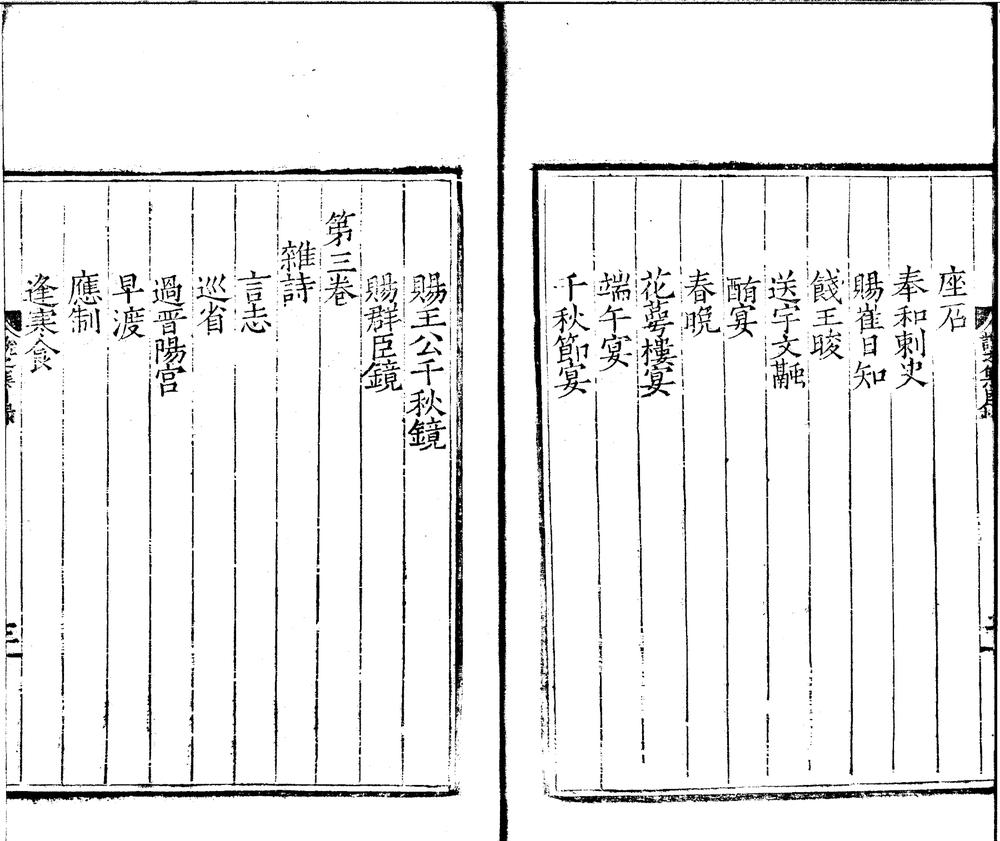 座右
奉和刺史
賜崔日知
餞王晙
送宇文融
酺宴
春晩
花萼樓宴
端午宴
千秋節宴
賜王公千秋鏡
賜群臣鏡
第三卷
雜詩
言志
巡省
過晉陽宮
早渡
應制
逢寒食
三